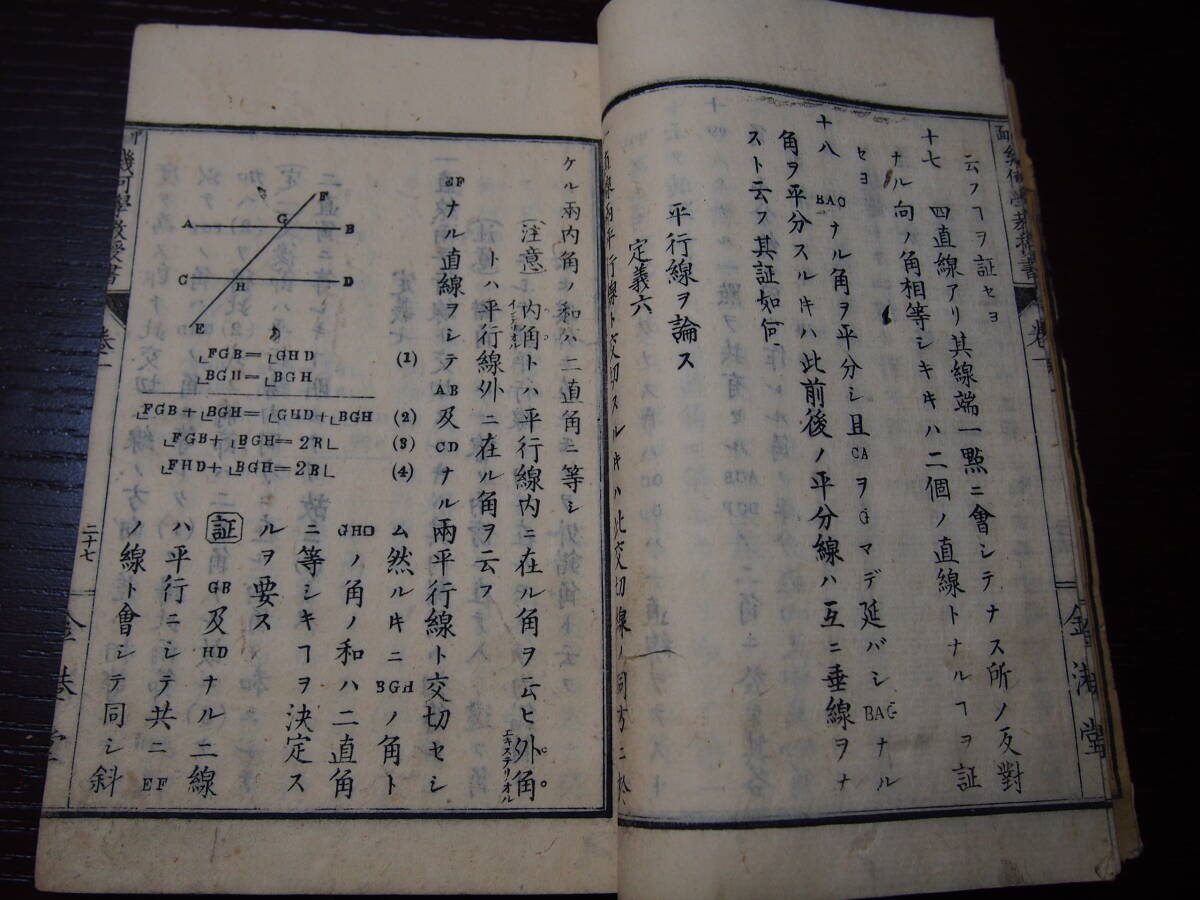 云フヿヲ証セヨ
十七 四直線アリ其線端一點ニ會シテナス所ノ反對
ナル向ノ角相等シキキハ二個ノ直線トナルヿヲ証
セヨ
十八 BACナル角ヲ平分シ且CAヲGマデ延バシBAGナル
角ヲ平分スルキハ此前後ノ平分線ハ互ニ垂線ヲナ
スト云フ其証如何
平行線ヲ論ス
定義六
直線兩平行線ト交切スルキハ此交切線ノ同方ニ於
金港堂
ケル兩内角ノ和ハ二直角ニ等シ
(注意) 内角トハ平行線内ニ在ル角ヲ云ヒ外角
インテリオル
エキステリオル
トハ平行線外ニ在ル角ヲ云フ
EFナル直線ヲシテAB及CDナル兩平行線ト交切セシ
ム然ルキニBGHノ角ト
GHDノ角ノ和ハ二直角
ニ等シキヿヲ決定ス
ルヲ要ス
証 GB及HDナル二線
ハ平行ニシテ共ニEF
ノ線ト會シテ同シ斜
F
G
A B
C D
H
E
∟FGB=∟GHD (1)
∟BGH=∟BGH
∟FGB+∟BGH=∟GHD+∟BGH (2)
∟FGB+∟BGH=2R∟ (3)
∟FHD+∟BGH=2R∟ (4)
幾何學教授書
卷一
二十七
金港堂